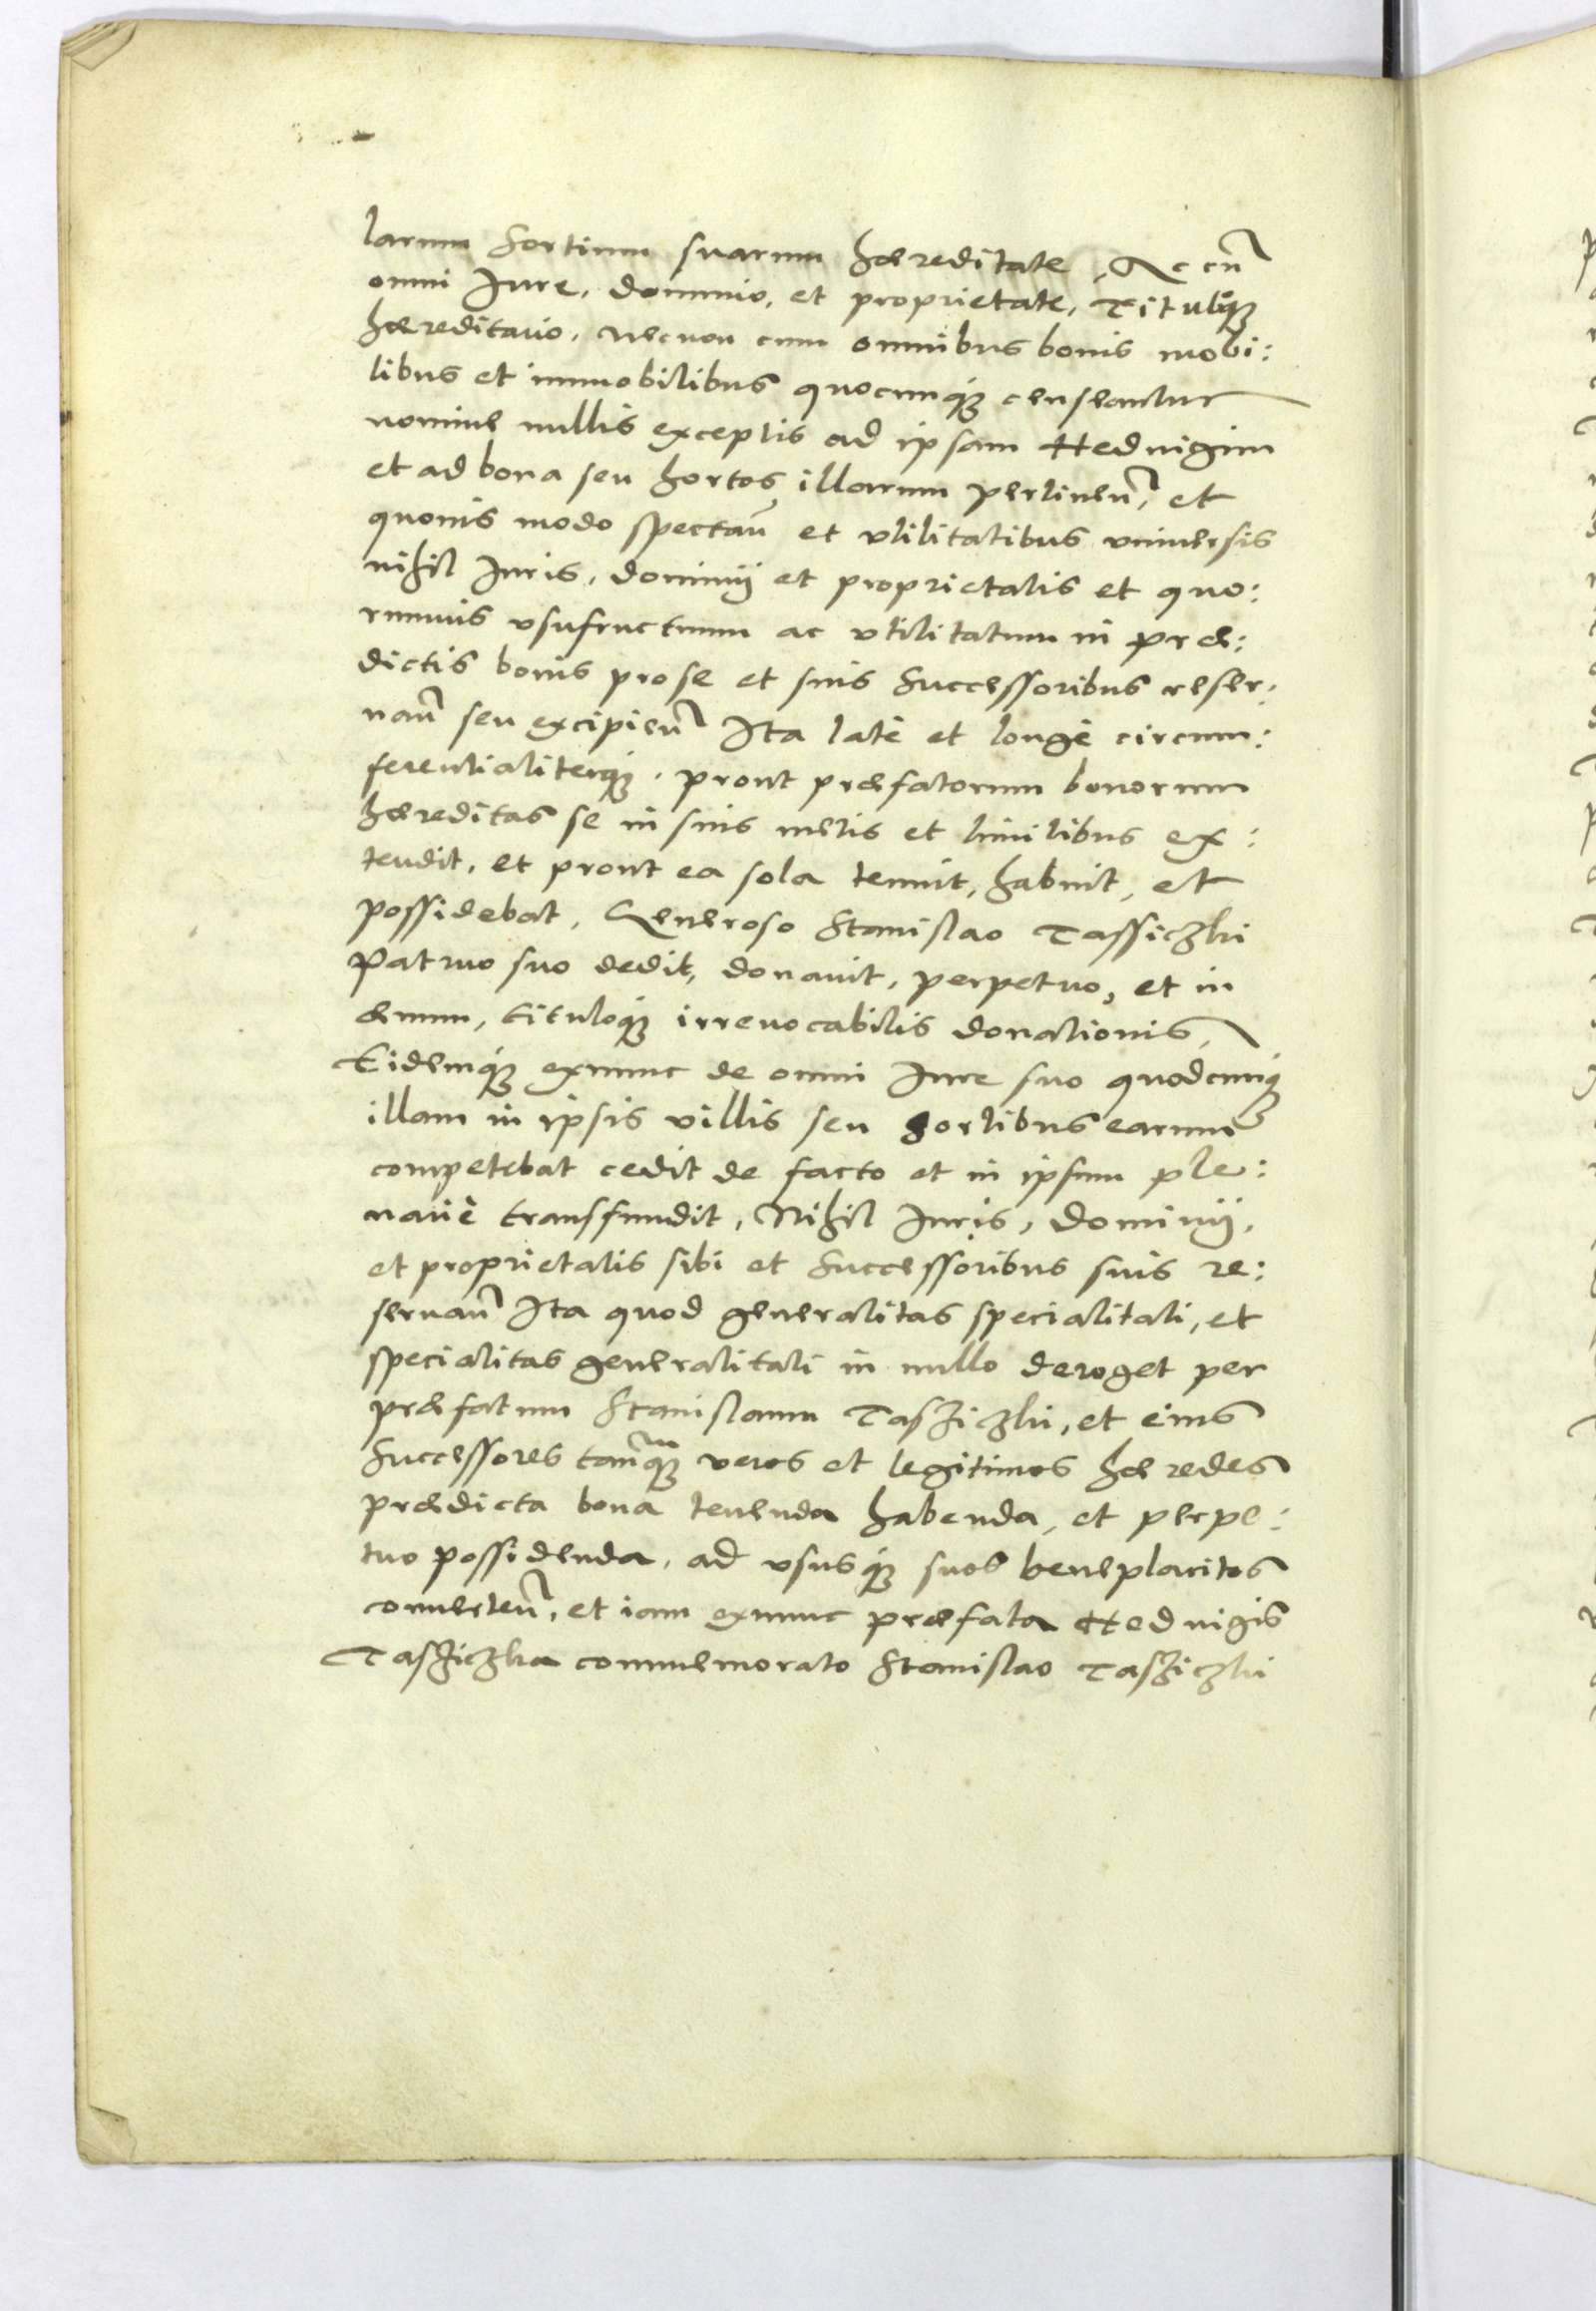 larum Sortium suarum hæreditate, Ac cũ
omni Jure, dominio, et proprietate, Tituloq́ue
hæreditario, necnon cum omnibus bonis mobi:
libus et immobilibus quocunq́ue censeantur
nomine nullis exceptis ad ipsam Heduigim
et ad bona seu hortos illarum pertineñ, et
quouis modo spectañ et vtilitatibus vniuersis
nihil Juris, dominij et proprietatis et quo:
rumuis vsufructuum ac vtilitatum in præ:
dictis bonis pro se et suis Successoribus reser:
uañ seu excipieñ Ita latè et longè circum:
ferentialiterq́ue, prout præfatorum bonorum
hæreditas se in suis metis et limitibus ex:
tendit, et prout ea sola tenuit, habuit, et
possidebat, Generoso Stanislao Tassiczki
Patruo suo dedit, donauit, perpetuo, et in
æuum, tituloq́ue irreuocabilis donationis,
Eidemq́ue exnunc de omni Jure suo quodcunq́ue
illam in ipsis villis seu sortibus earum
competebat cedit de facto et in ipsum ple:
nariè transfundit, Nihil Juris, dominij,
et proprietatis sibi et Successoribus suis re:
seruañ Ita quod generalitas specialitati, et
specialitas generalitati in nullo deroget per
præfatum Stanislaum Tasziczki, et eius
Successores tanq̃uam veros et legitimos hæredes
prædicta bona tenenda habenda, et perpe:
tuo possidenda, ad vsusq́ue suos beneplacitos
conuerteñ, et iam exnunc præfata Heduigis
Tasziczka commemorato Stanislao Tasziczki